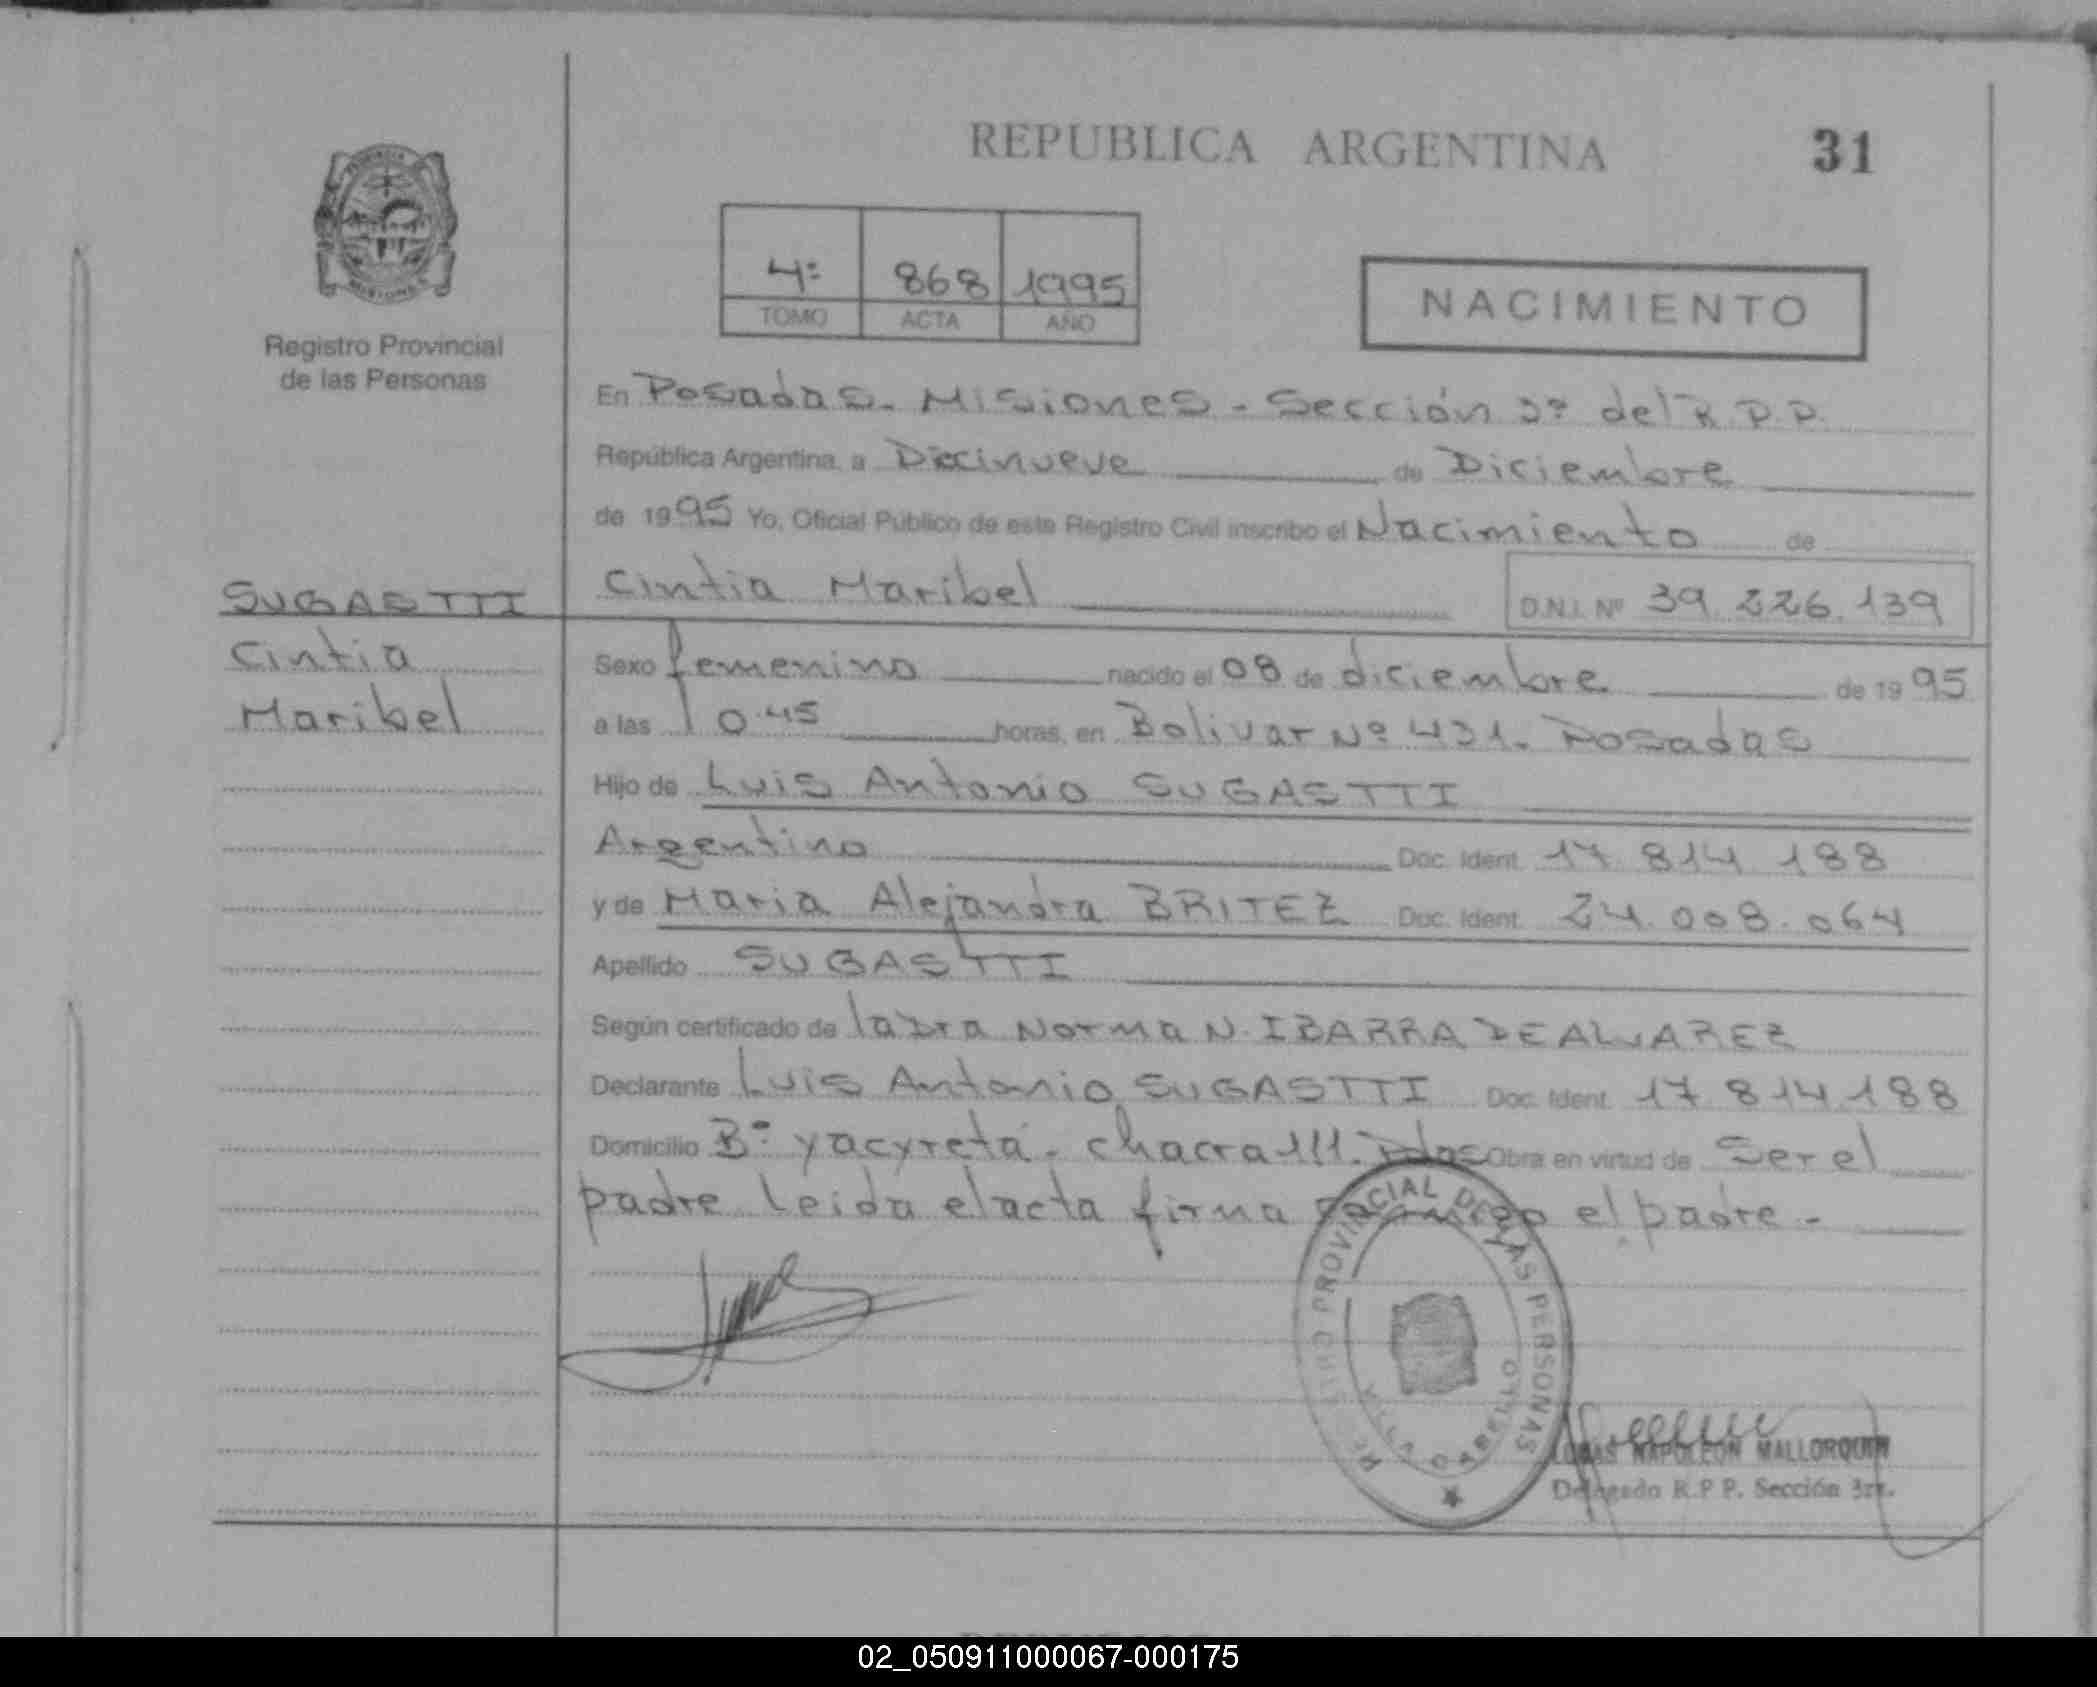 REPUBLICA ARGENTINA 31
PROVINCIA
MISIONES
Registro Provincial
de las Personas
4º 868 1995
TOMO ACTA AÑO
NACIMIENTO
En Posadas - Misiones - Sección 3º del R.P.P.
República Argentina, a Diecinueve de Diciembre
de 1995 Yo, Oficial Público de este Registro Civil inscribo el Nacimiento de
Cintia Maribel D.N.I. Nº 39.226.139
SUGASTTI
Cintia
Maribel
Sexo femenino nacido el 08 de diciembre de 1995
a las 0.45 horas, en Bolivar Nº 431. Posadas
Hijo de Luis Antonio SUGASTTI
Argentino Doc. Ident. 17.814.188
y de Maria Alejandra BRITEZ Doc. Ident. 24.008.064
Apellido SUGASTTI
Según certificado de la Dra Norma N. IBARRA DE ALVAREZ
Declarante Luis Antonio SUGASTTI Doc. Ident. 17.814.188
Domicilio Bº yacyretá - chacra 111. Pdas Obra en virtud de Ser el
padre leida el acta firma conmigo el padre -
REGISTRO PROVINCIAL DE LAS PERSONAS
VILLA CABELLO
LUCAS NAPOLEON MALLORQUIN
Delegado R.P.P. Sección 3ra.
02_050911000067-000175